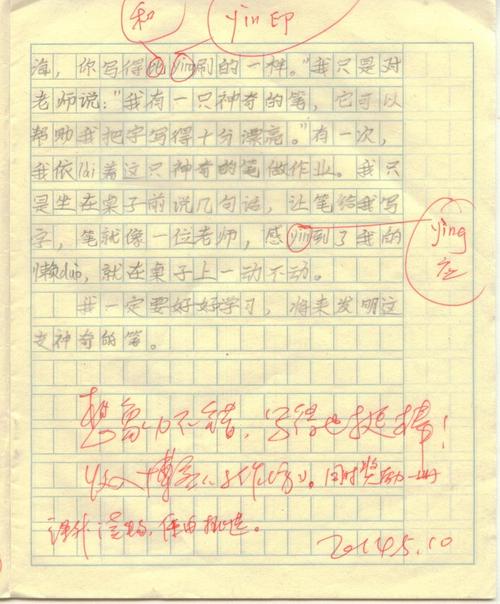 和
yin 印
海，你写得比ying刷的一样。"我只是对
老师说："我有一只神奇的笔，它可以
帮助我把字写得十分漂亮。"有一次，
我依lai着这只神奇的笔做作业。我只
是坐在桌子前说几句话，让笔给我写
字，笔就像一位老师，感yin到了我的
ying
应
懒duo，就在桌子上一动不动。
我一定要好好学习，将来发明这
支神奇的笔。
想象力不错，写得也挺棒！
收入博客《》。同时奖励一册
课外读物，任由挑选。
2014.5.10